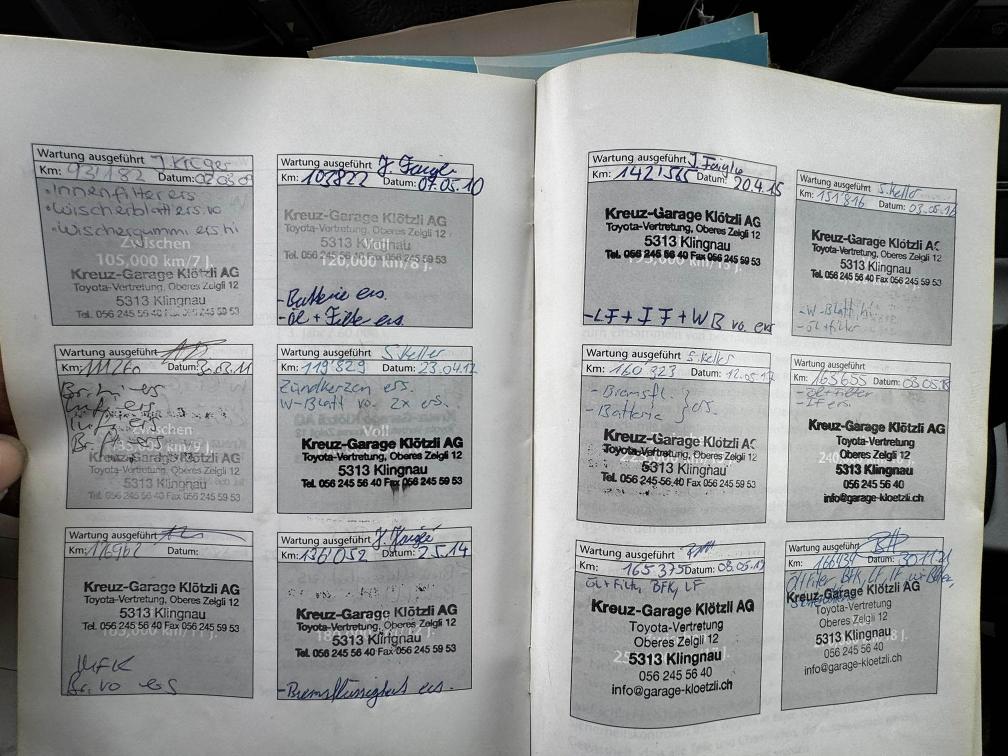 Wartung ausgeführt J. Krüger
Km: 93'182 Datum: 02 03 09
• Innenfilter ers
• Wischerblatt ers. vo
• Wischergummi ers hi
Zwischen
105,000 km/7 J.
Kreuz-Garage Klötzli AG
Toyota-Vertretung, Oberes Zelgli 12
5313 Klingnau
Tel. 056 245 56 40 Fax 056 245 59 53
Wartung ausgeführt
Km: 103822 Datum: 07.05.10
Kreuz-Garage Klötzli AG
Toyota-Vertretung, Oberes Zelgli 12
5313 Klingnau
Voll
Tel. 056 245 56 40 Fax 056 245 59 53
120,000 km/8 J.
- Batterie ers.
- Öl + Filter ers.
Wartung ausgeführt
Km: 111260 Datum:
Br. hi ers
Luf. ers
Zwischen
Kreuz-Garage Klötzli AG
Toyota-Vertretung, Oberes Zelgli 12
5313 Klingnau
Tel. 056 245 56 40 Fax 056 245 59 53
Wartung ausgeführt S. Keller
Km: 119'829 Datum: 23.04.12
Zündkerzen ers.
W-Blatt vo. 2x ers.
Voll
Kreuz-Garage Klötzli AG
Toyota-Vertretung, Oberes Zelgli 12
5313 Klingnau
Tel. 056 245 56 40 Fax 056 245 59 53
Wartung ausgeführt
Km: 126962 Datum:
Kreuz-Garage Klötzli AG
Toyota-Vertretung, Oberes Zelgli 12
5313 Klingnau
Tel. 056 245 56 40 Fax 056 245 59 53
MFK
Br. vo ers
Wartung ausgeführt
Km: 136'052 Datum: 2.5.14
Kreuz-Garage Klötzli AG
Toyota-Vertretung, Oberes Zelgli 12
5313 Klingnau
Tel. 056 245 56 40 Fax 056 245 59 53
- Bremsflüssigkeit ers.
Wartung ausgeführt
Km: 142'565 Datum: 20.4.15
Kreuz-Garage Klötzli AG
Toyota-Vertretung, Oberes Zelgli 12
5313 Klingnau
Tel. 056 245 56 40 Fax 056 245 59 53
- LF + IF + WB vo. ers
Wartung ausgeführt S. Keller
Km: 151'816 Datum: 03.05.16
Kreuz-Garage Klötzli AG
Toyota-Vertretung, Oberes Zelgli 12
5313 Klingnau
Tel. 056 245 56 40 Fax 056 245 59 53
- W-Blatt
- Öl + Filter
Wartung ausgeführt S. Keller
Km: 160 323 Datum: 12.05.17
- Bremsfl. } ers.
- Batterie
Kreuz-Garage Klötzli AG
Toyota-Vertretung, Oberes Zelgli 12
5313 Klingnau
Tel. 056 245 56 40 Fax 056 245 59 53
Wartung ausgeführt
Km: 163655 Datum: 03.05.18
- Öl + Filter
- IF ers.
Kreuz-Garage Klötzli AG
Toyota-Vertretung
Oberes Zelgli 12
5313 Klingnau
056 245 56 40
info@garage-kloetzli.ch
Wartung ausgeführt
Km: 165 375 Datum: 08.05.19
Öl + Filter, BFK, LF
Kreuz-Garage Klötzli AG
Toyota-Vertretung
Oberes Zelgli 12
5313 Klingnau
056 245 56 40
info@garage-kloetzli.ch
Wartung ausgeführt
Km: Datum:
Öl Filter, BFK, LF, IF
Kreuz-Garage Klötzli AG
Toyota-Vertretung
Oberes Zelgli 12
5313 Klingnau
056 245 56 40
info@garage-kloetzli.ch